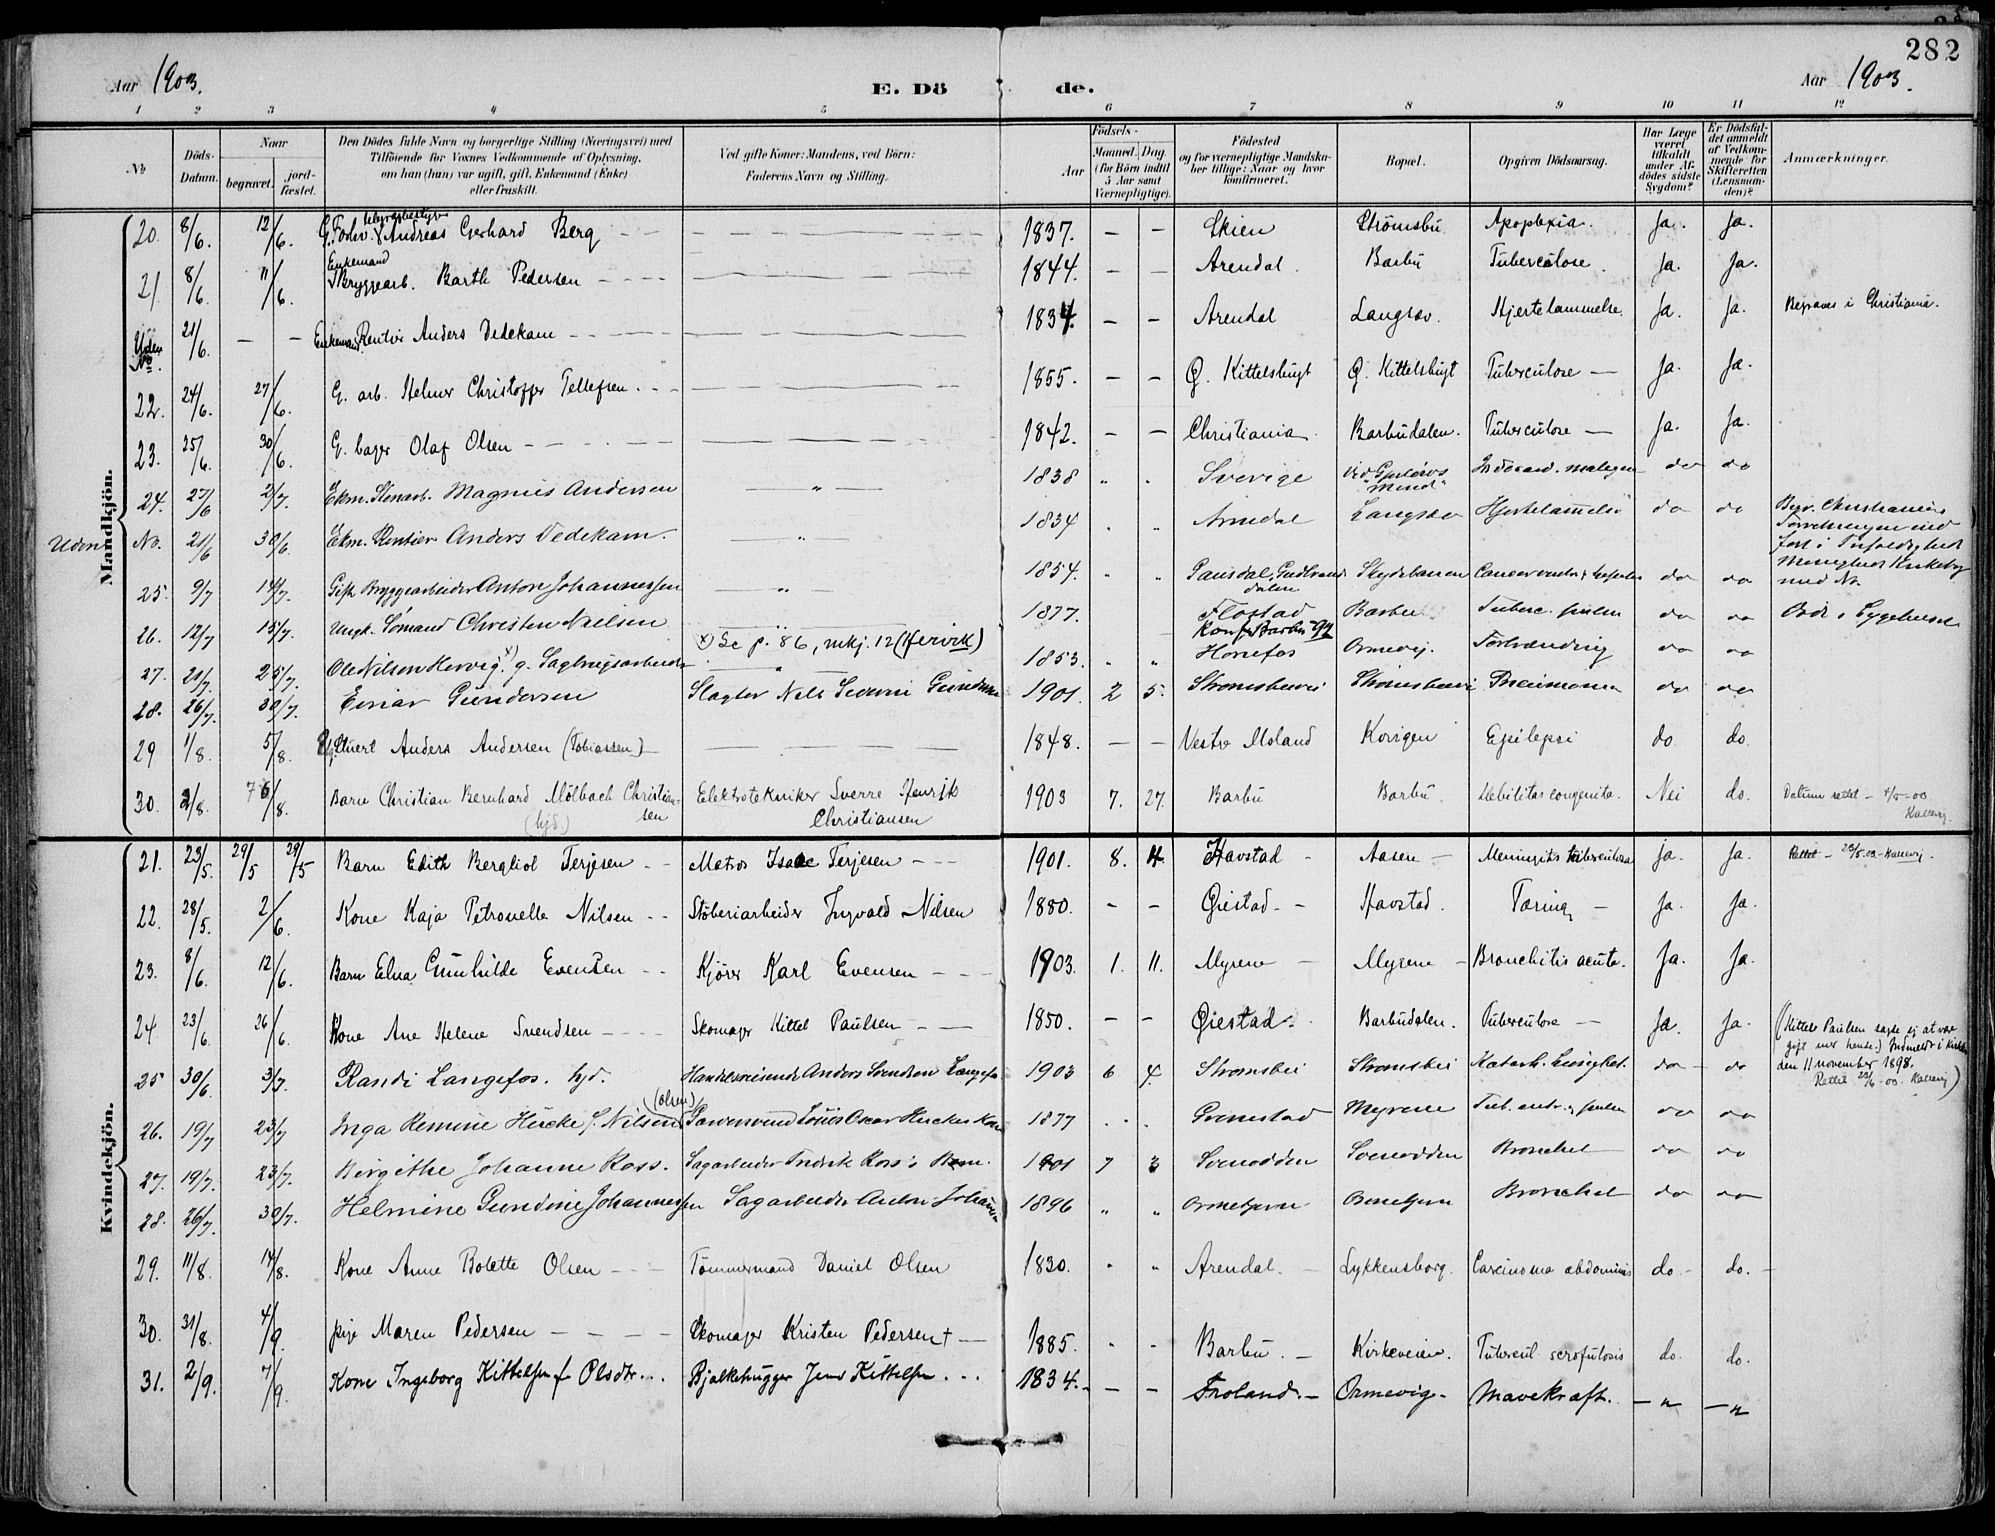 282
Aar 1903. E. Dö de. Aar 1903.
1 2 3 4 5 6 7 8 9 10 11 12
No Döds-Datum. Naar begravet. jord-fæstet. Den Dödes fulde Navn og borgerlige Stilling (Næringsvei) med Tilföiende for Voxnes Vedkommende af Oplysning, om han (hun) var ugift, gift, Enkemand (Enke) eller fraskilt. Ved gifte Koner: Mandens, ved Börn: Faderens Navn og Stilling. Födsels- Aar Maaned. Dag. (for Börn indtil 5 Aar samt Værnepligtige). Födested og for værnepligtige Mandskaber tillige: Naar og hvor konfirmeret. Bopæl. Opgiven Dödsaarsag. Har Læge været tilkaldt under Afdödes sidste Sygdom? Er Dödsfaldet anmeldt af Vedkommende for Skifteretten (Lensmanden)? Anmærkninger.
Mandkjön.
20. 8/6. 12/6. G. Forhv. Andreas Gerhard Berg 1837. – – Skien Strömsbu Apoplexia. Ja. Ja.
21. 8/6. 11/6. Enkemand Bryggearb. Barth Pedersen 1844. – – Arendal. Barbu Tuberculose. Ja. Ja.
Uden No. 21/6. – – Enkemand. Rentier Anders Dedekam 1834. – – Arendal Langsæv. Hjertelammelse. Ja. Ja. Begraves i Christiania.
22. 24/6. 27/6. G. arb. Helmer Christoffer Tellefsen. 1855. – – Ø. Kittelsbugt Ø. Kittelsbugt Tuberculose – Ja. Ja.
23. 25/6. 30/6. G. bager Olaf Olsen 1842. – – Christiania. Barbudalen. Tuberculose – Ja. Ja.
24. 27/6 2/7. Ekm. Stenarb. Magnus Andersen – " – 1838 " . Sverige Minde" do do
Uden No. 21/6 30/6 Ekm. Rentier Anders Dedekam. " 1834 . . Arendal Langsæv Hjertelammelse do do
25. 9/7 14/7. Gift Bryggearbeider Anton Johannessen " 1854. " " Gudbrands dalen do do
26. 12/7 15/7. Ungk. Sømand Christen Nielsen 1877. Flostad Konf. Barbu 92 Barbu Tuberc. pulm do do
27. 21/7. 25/7. Ole Nilsen Hervig x) g. Sagbrugsarbeider x) Se p. 86, mkj. 12 (Hervik) 1853. " " Hønefos Ormevig. do do
28. 26/7. 30/7. Einar Gundersen Slagter Nils Severin Gundersen 1901. 2 5. Strømsbuvei Strømsbuvei Pneumonia do do
29 1/8. 5/8. Anders Andersen (Tobiassen) 1848. – – Vestre Moland Korigen Epilepsi do. do.
30. 2/8. 6/8. Barn Christian Bernhard Mölbach Christiansen (hjd.) Elektrotekniker Sverre Henrik Christiansen 1903 7. 27. Barbu Barbu. Debilitas congenita. Nei do. Datum rettet –
Kvindekjön.
21. 23/5. 29/5 29/5 Barn Edith Bergliot Terjesen Matros Isaac Terjesen 1901. 8. 4. Havstad – Aasen – Meningitis tuberculosa Ja. Ja. Rettet –
22. 28/5. 2/6. Kone Kaja Petronelle Nilsen Støberiarbeider Ingvald Nilsen 1880. – – Øiestad. – Havstad. Tæring – Ja. Ja.
23. 8/6. 12/6. Barn Elna Gunhilde Evensen Kjörer Karl Evensen 1903. 1. 11. Myrene – Myrene – Bronchitis acuta. Ja. Ja.
24 23/6. 26/6. Kone Ane Helene Svendsen Skomager Kittel Paulsen 1850. – – Øiestad. Barbudalen. Tuberculose – Ja. Ja. (Kittel Paulsen sagde ej at være gift med hende.) Indmeldt i Kirken den 11 november 1898.
25 30/6. 3/7. Randi Langefos. hjd. Handelsreisende Anders Svendsen Langefos 1903 6 4. Strømsbu Strømsbu do do
26. 19/7 23/7 Inga Remine Hircke f. Nilsen (Olsen) 1877 Grimestad Myrene Tub. pulm do do
27. 19/7. 23/7. Birgithe Johanne Ross. Sagarbeider Fredrik Ross's Barn. 1901 7 3 Svenodden Svenodden Bronchit do do
28. 26/7. 30/7. Helmine Gundine Johannessen Sagarbeider Anton Johannessen 1896 " " Ormetjern Ormetjern Bronchit do do
29. 11/8. 14/8. Kone Anne Bolette Olsen Tömmermand Daniel Olsen 1830. " " Arendal. Lykkensborg. Carcinoma abdominis do – do. –
30. 31/8. 4/9. pige Maren Pedersen Skomager Kristen Pedersen † – 1885. " " Barbu. – Kirkeveien. Tubercul. scrofulosis do. do.
31. 2/9. 7/9. Kone Ingeborg Kittelsen f. Olsdtr... Bjælkehugger Jens Kittelsen ... 1834. – – Froland. – Ormevig – Mavekræft. – " – "